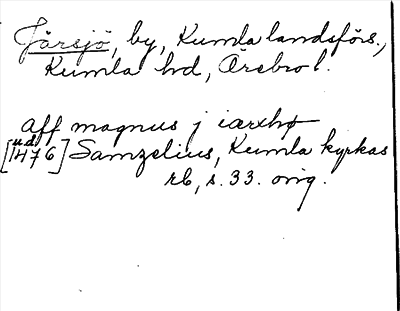 Järsjö, by, Kumla landsförs.,
Kumla hd, Örebro l.
aff magnus j iærxhø
[ud 1476] Samzelius, Kumla kyrkas
rb, s. 33. orig.